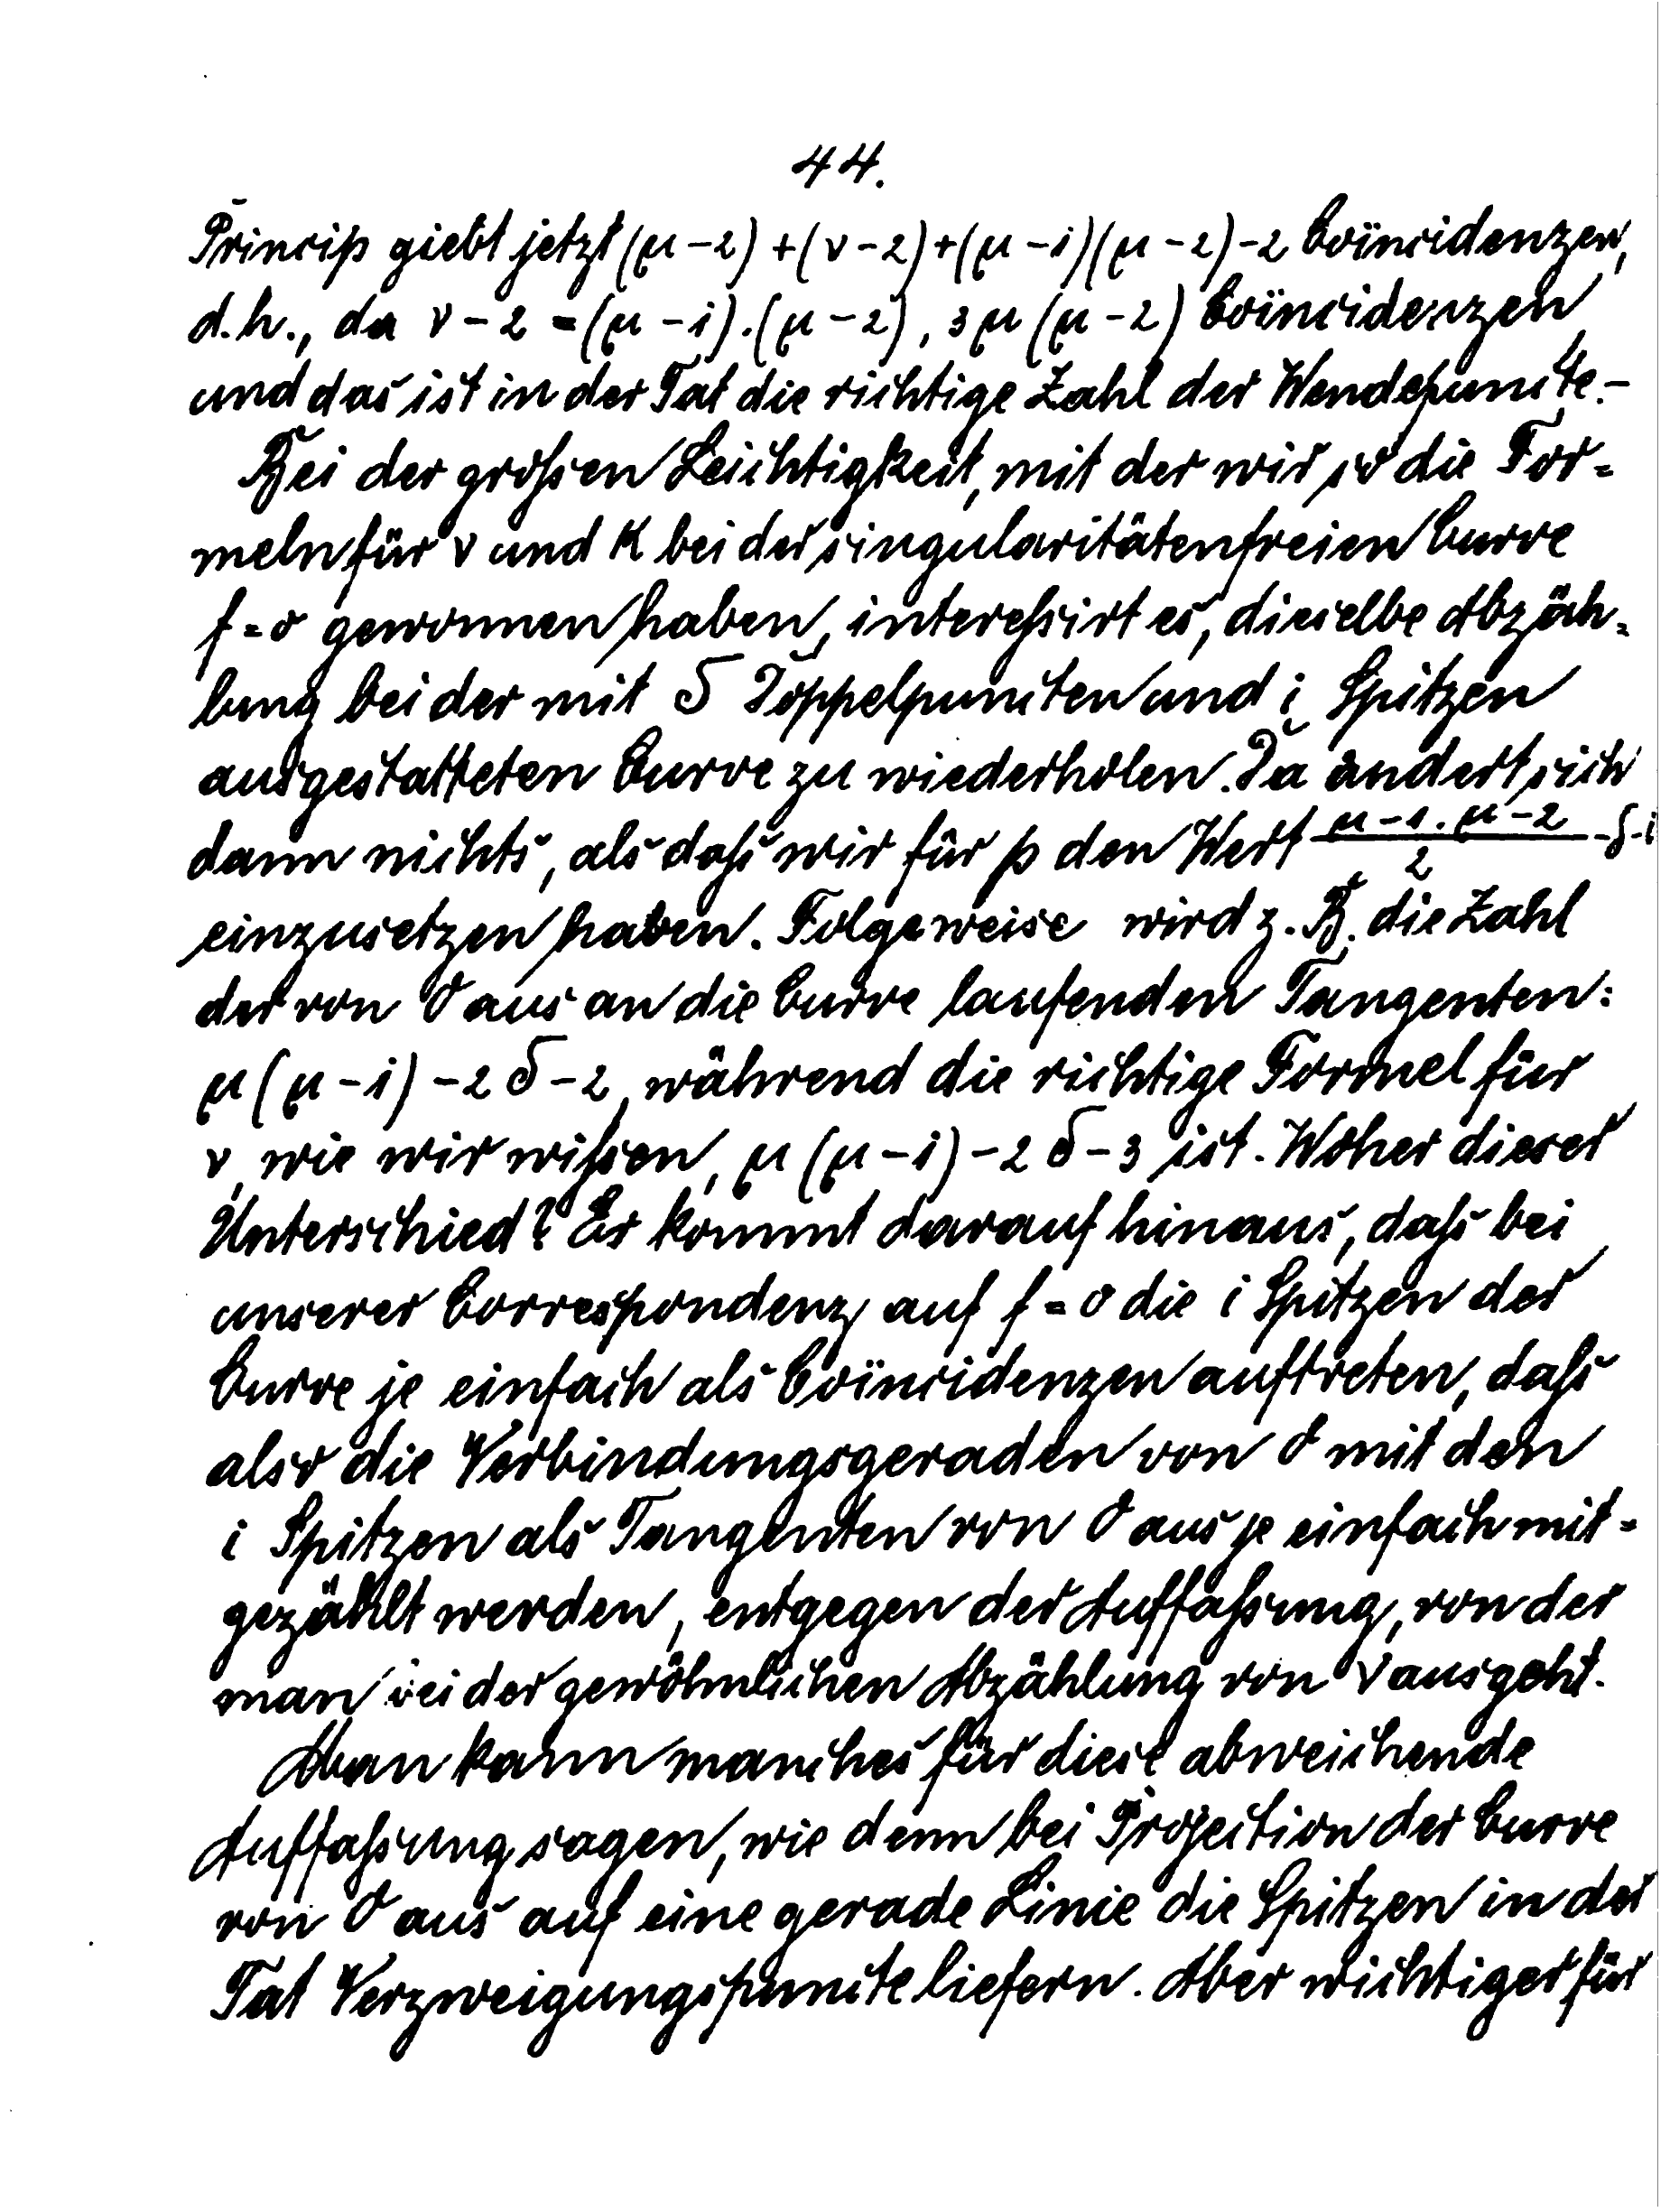 44.
Princip giebt jetzt (μ-2)+(ν-2)+(μ-1)(μ-2)-2 Coïncidenzen,
d.h., da ν-2=(μ-1).(μ-2), 3μ(μ-2) Coïncidenzen
und das ist in der Tat die richtige Zahl der Wendepuncte.-
Bei der grossen Leichtigkeit, mit der wir so die For-
meln für ν und K bei der singularitätenfreien Curve
f=0 gewonnen haben, interessirt es, dieselbe Abzäh-
lung bei der mit δ Doppelpuncten und i Spitzen
ausgestatteten Curve zu wiederholen. Da ändert sich
dann nichts, als dass wir für p den Wert (μ-1.μ-2)/2 -δ-i
einzusetzen haben. Folgeweise wird z. B. die Zahl
der von O aus an die Curve laufenden Tangenten:
μ(μ-1)-2δ-2, während die richtige Formel für
ν, wie wir wissen, μ(μ-1)-2δ-3 ist. Woher dieser
Unterschied? Er kommt darauf hinaus, dass bei
unserer Correspondenz auf f=0 die i Spitzen der
Curve je einfach als Coïncidenzen auftreten, dass
also die Verbindungsgeraden von O mit den
i Spitzen als Tangenten von O aus je einfach mit-
gezählt werden, entgegen der Auffassung, von der
man bei der gewöhnlichen Abzählung von ν ausgeht.
Man kann manches für diese abweichende
Auffassung sagen, wie denn bei Projection der Curve
von O aus auf eine gerade Linie die Spitzen in der
Tat Verzweigungspuncte liefern. Aber wichtiger für